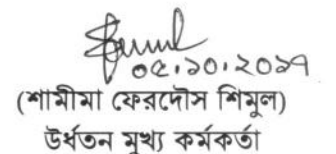 ০৫.১০.২০১৭
(শামীমা ফেরদৌস শিমুল)
উর্ধতন মুখ্য কর্মকর্তা